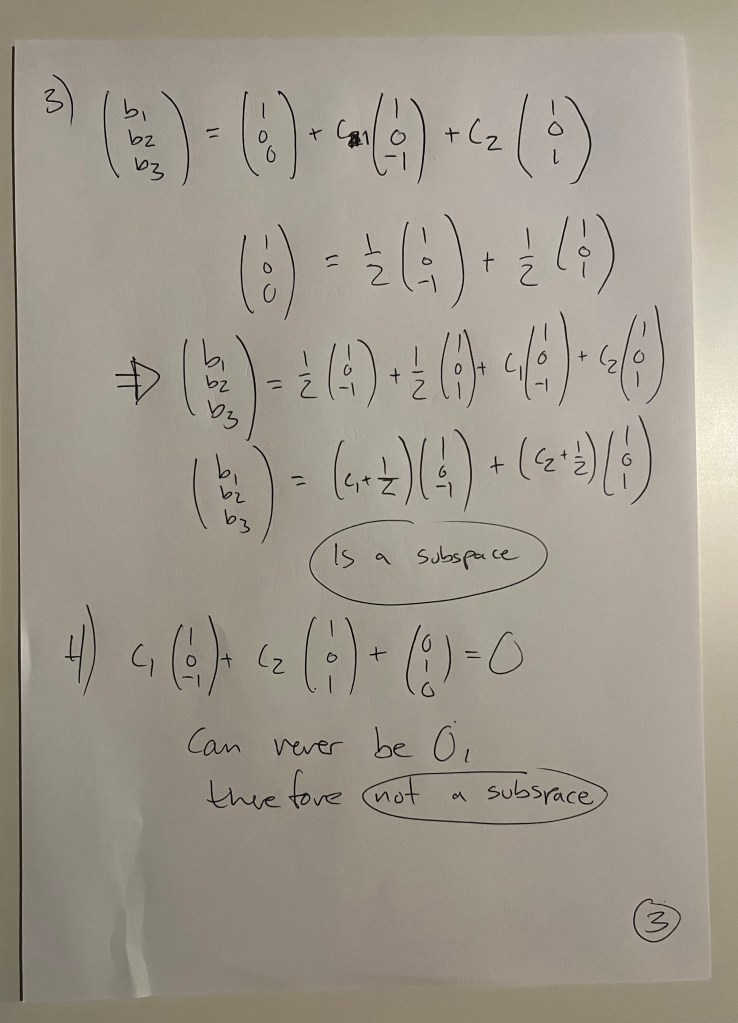 3) (b1 b2 b3) = (1 0 0) + c1 (1 0 -1) + c2 (1 0 1)
(1 0 0) = 1/2 (1 0 -1) + 1/2 (1 0 1)
⇒ (b1 b2 b3) = 1/2 (1 0 -1) + 1/2 (1 0 1) + c1 (1 0 -1) + c2 (1 0 1)
(b1 b2 b3) = (c1 + 1/2) (1 0 -1) + (c2 + 1/2) (1 0 1)
Is a subspace
4) c1 (1 0 -1) + c2 (1 0 1) + (0 1 0) = 0
Can never be 0,
therefore not a subspace
3